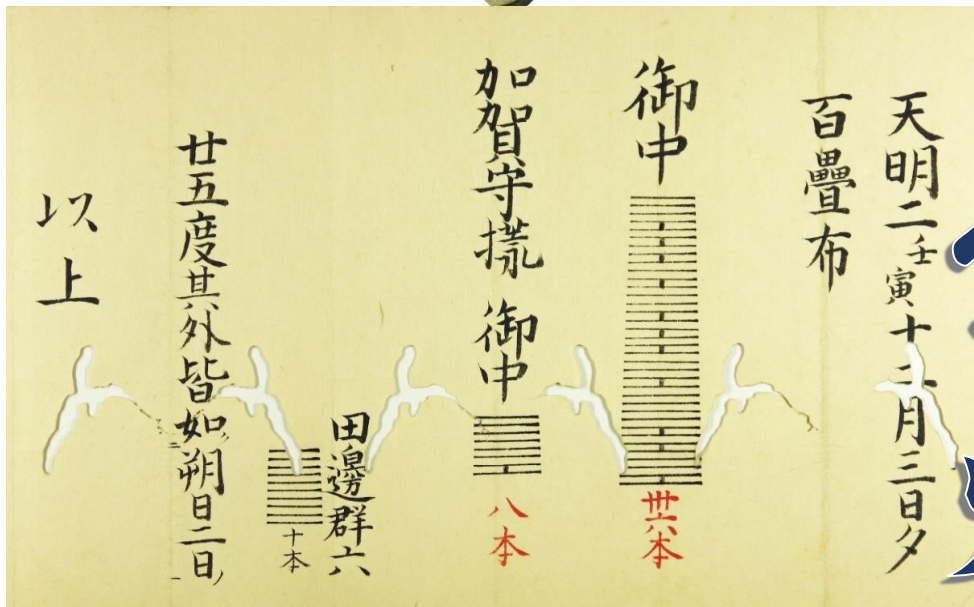 天明二壬寅十二月三日夕
百疊布
御中
丗六本
加賀守様 御中
八本
田邊群六
十本
廿五度其外皆如朔日二日
以上